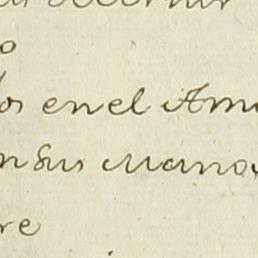 o
os en el Am
n sus Manos
re